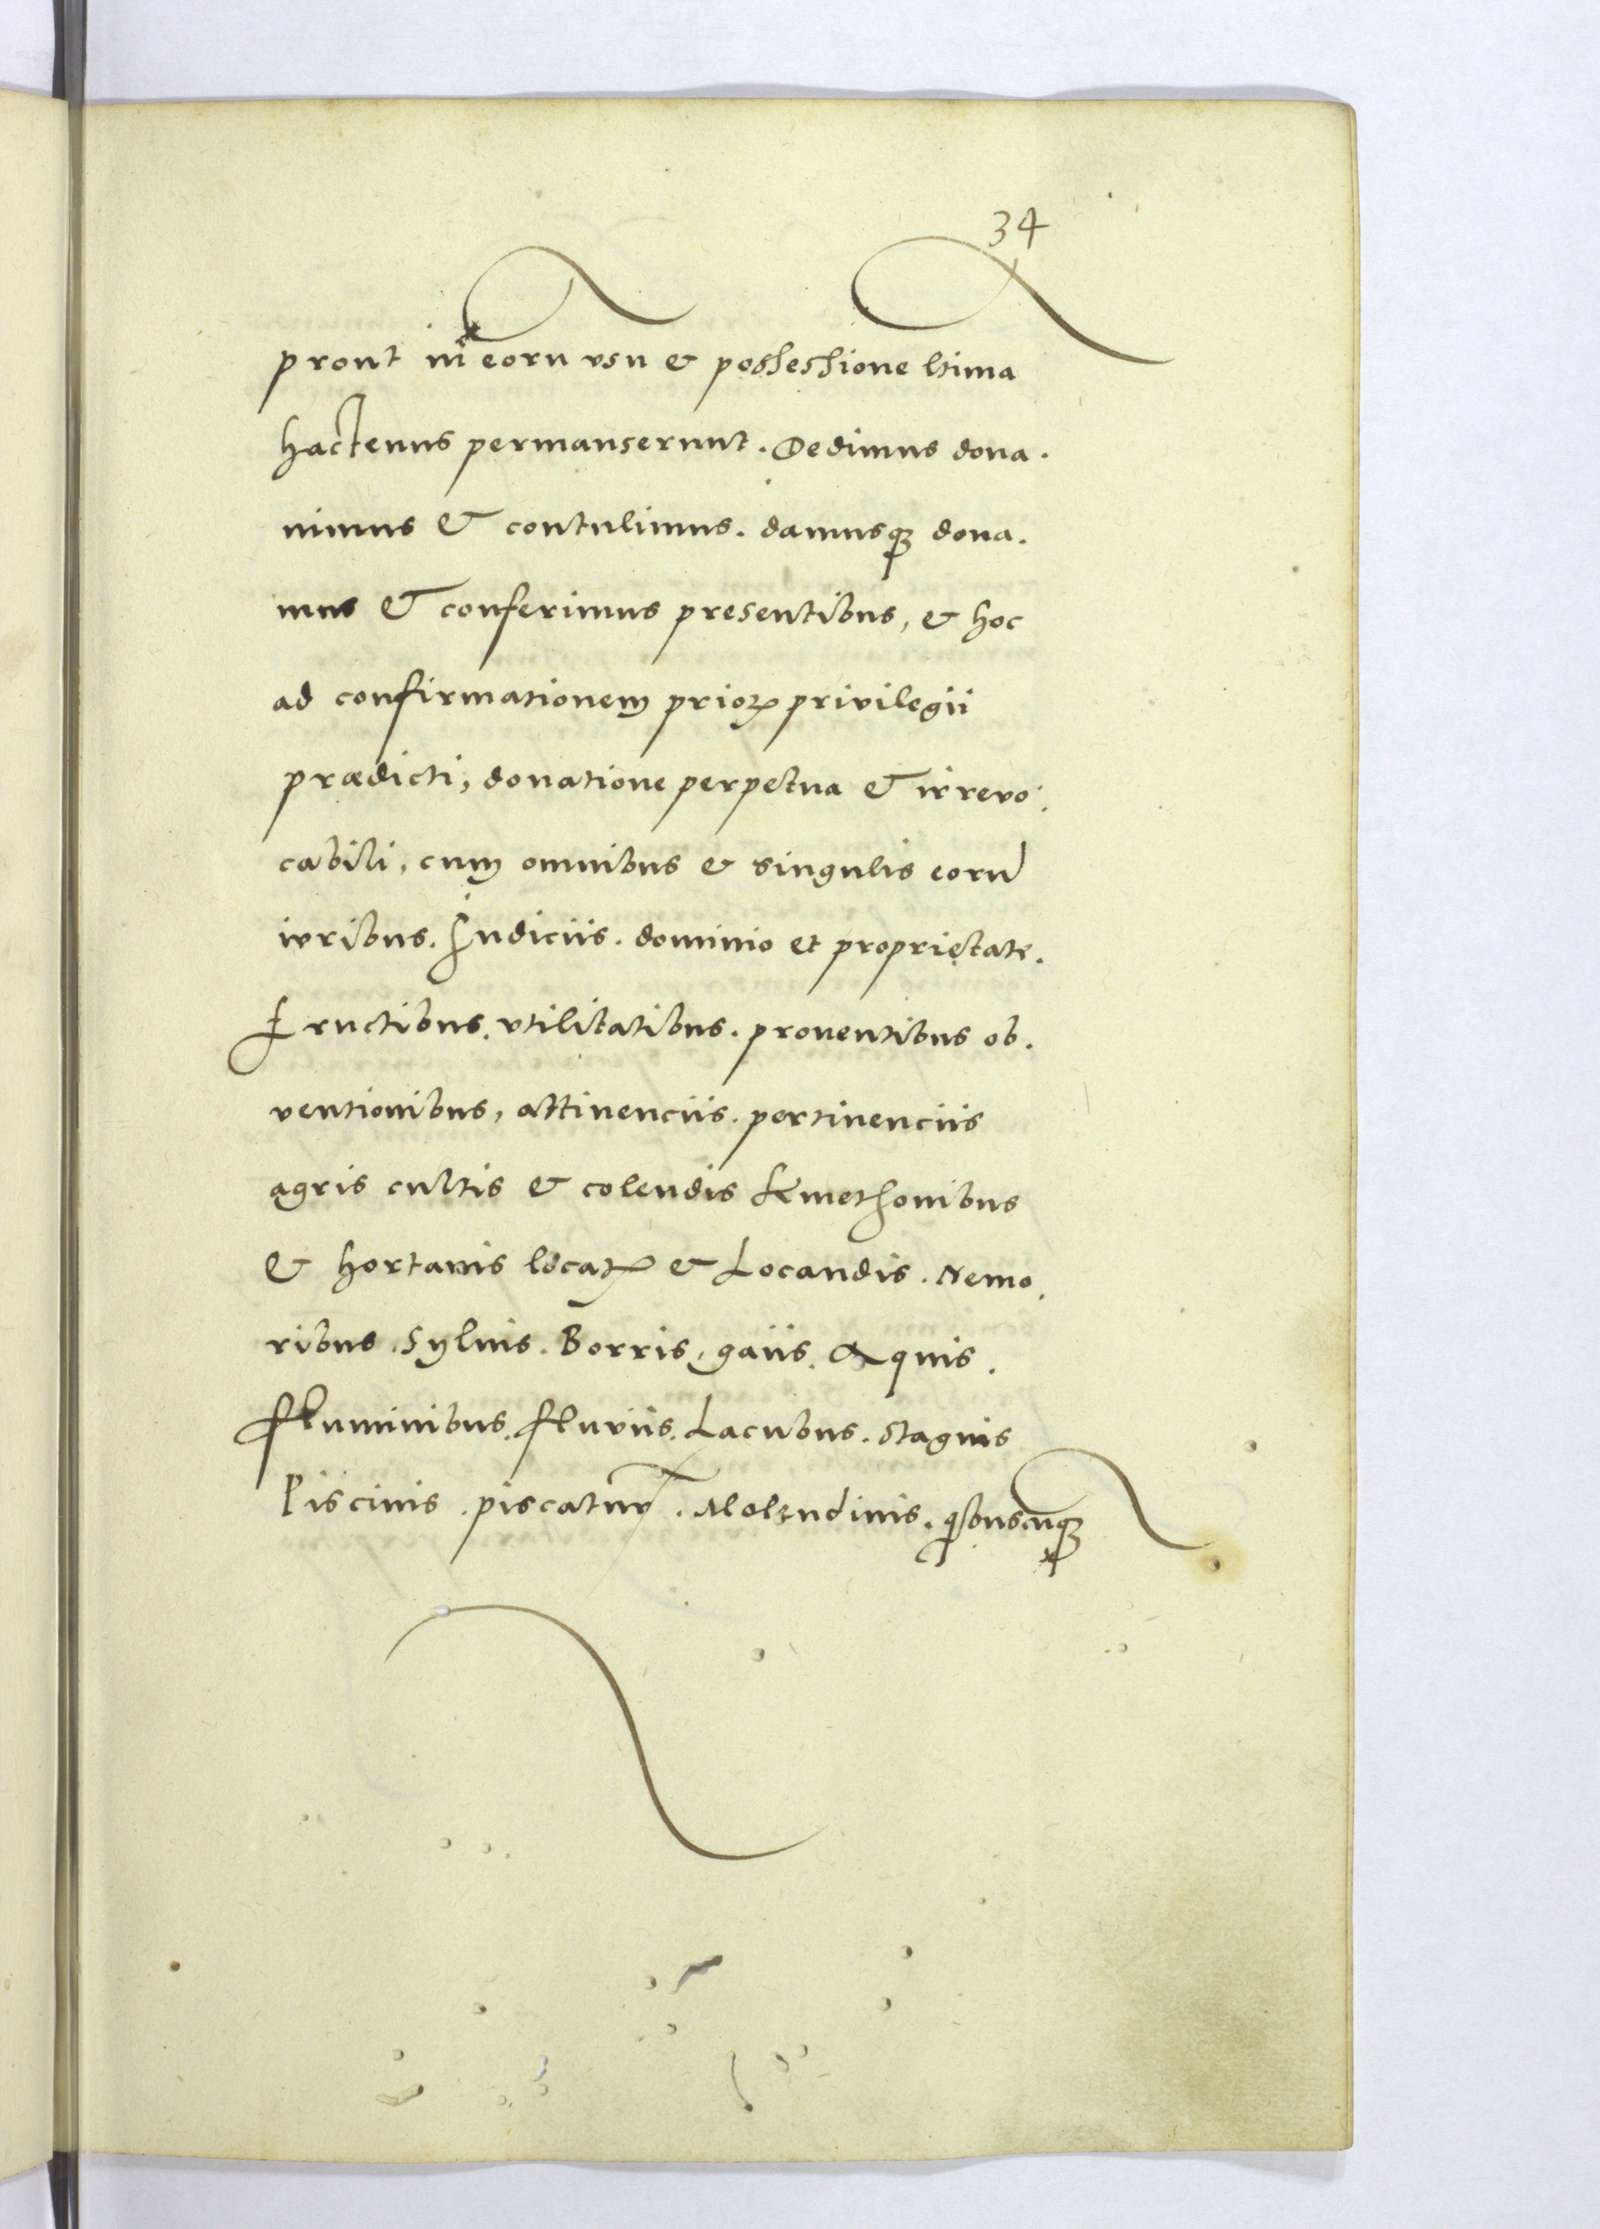 34
prout in eoru vsu & possessione ltima
hactenus permanserunt. Dedimus dona.
uimus & contulimus. damusq₃ dona.
mus & conferimus presentibus, & hoc
ad confirmationem prioꝝ privilegii
prædicti, donatione perpetua & irreuo.
cabili, cum omnibus & singulis eorū
iuribus. Iudiciis. dominio et proprietate.
fructibus. vtilitatibus. prouentibus ob.
ventionibus, attinenciis. pertinenciis
agris cultis & colendis kmethonibus
& hortanis locatꝝ & Locandis. Nemo.
ribus. Syluis. Borris, gaiis. Aquis.
fluminibus. fluviis. Lacubus. Stagnis
Piscinis. piscatur. Molendinis. qibuscuq₃